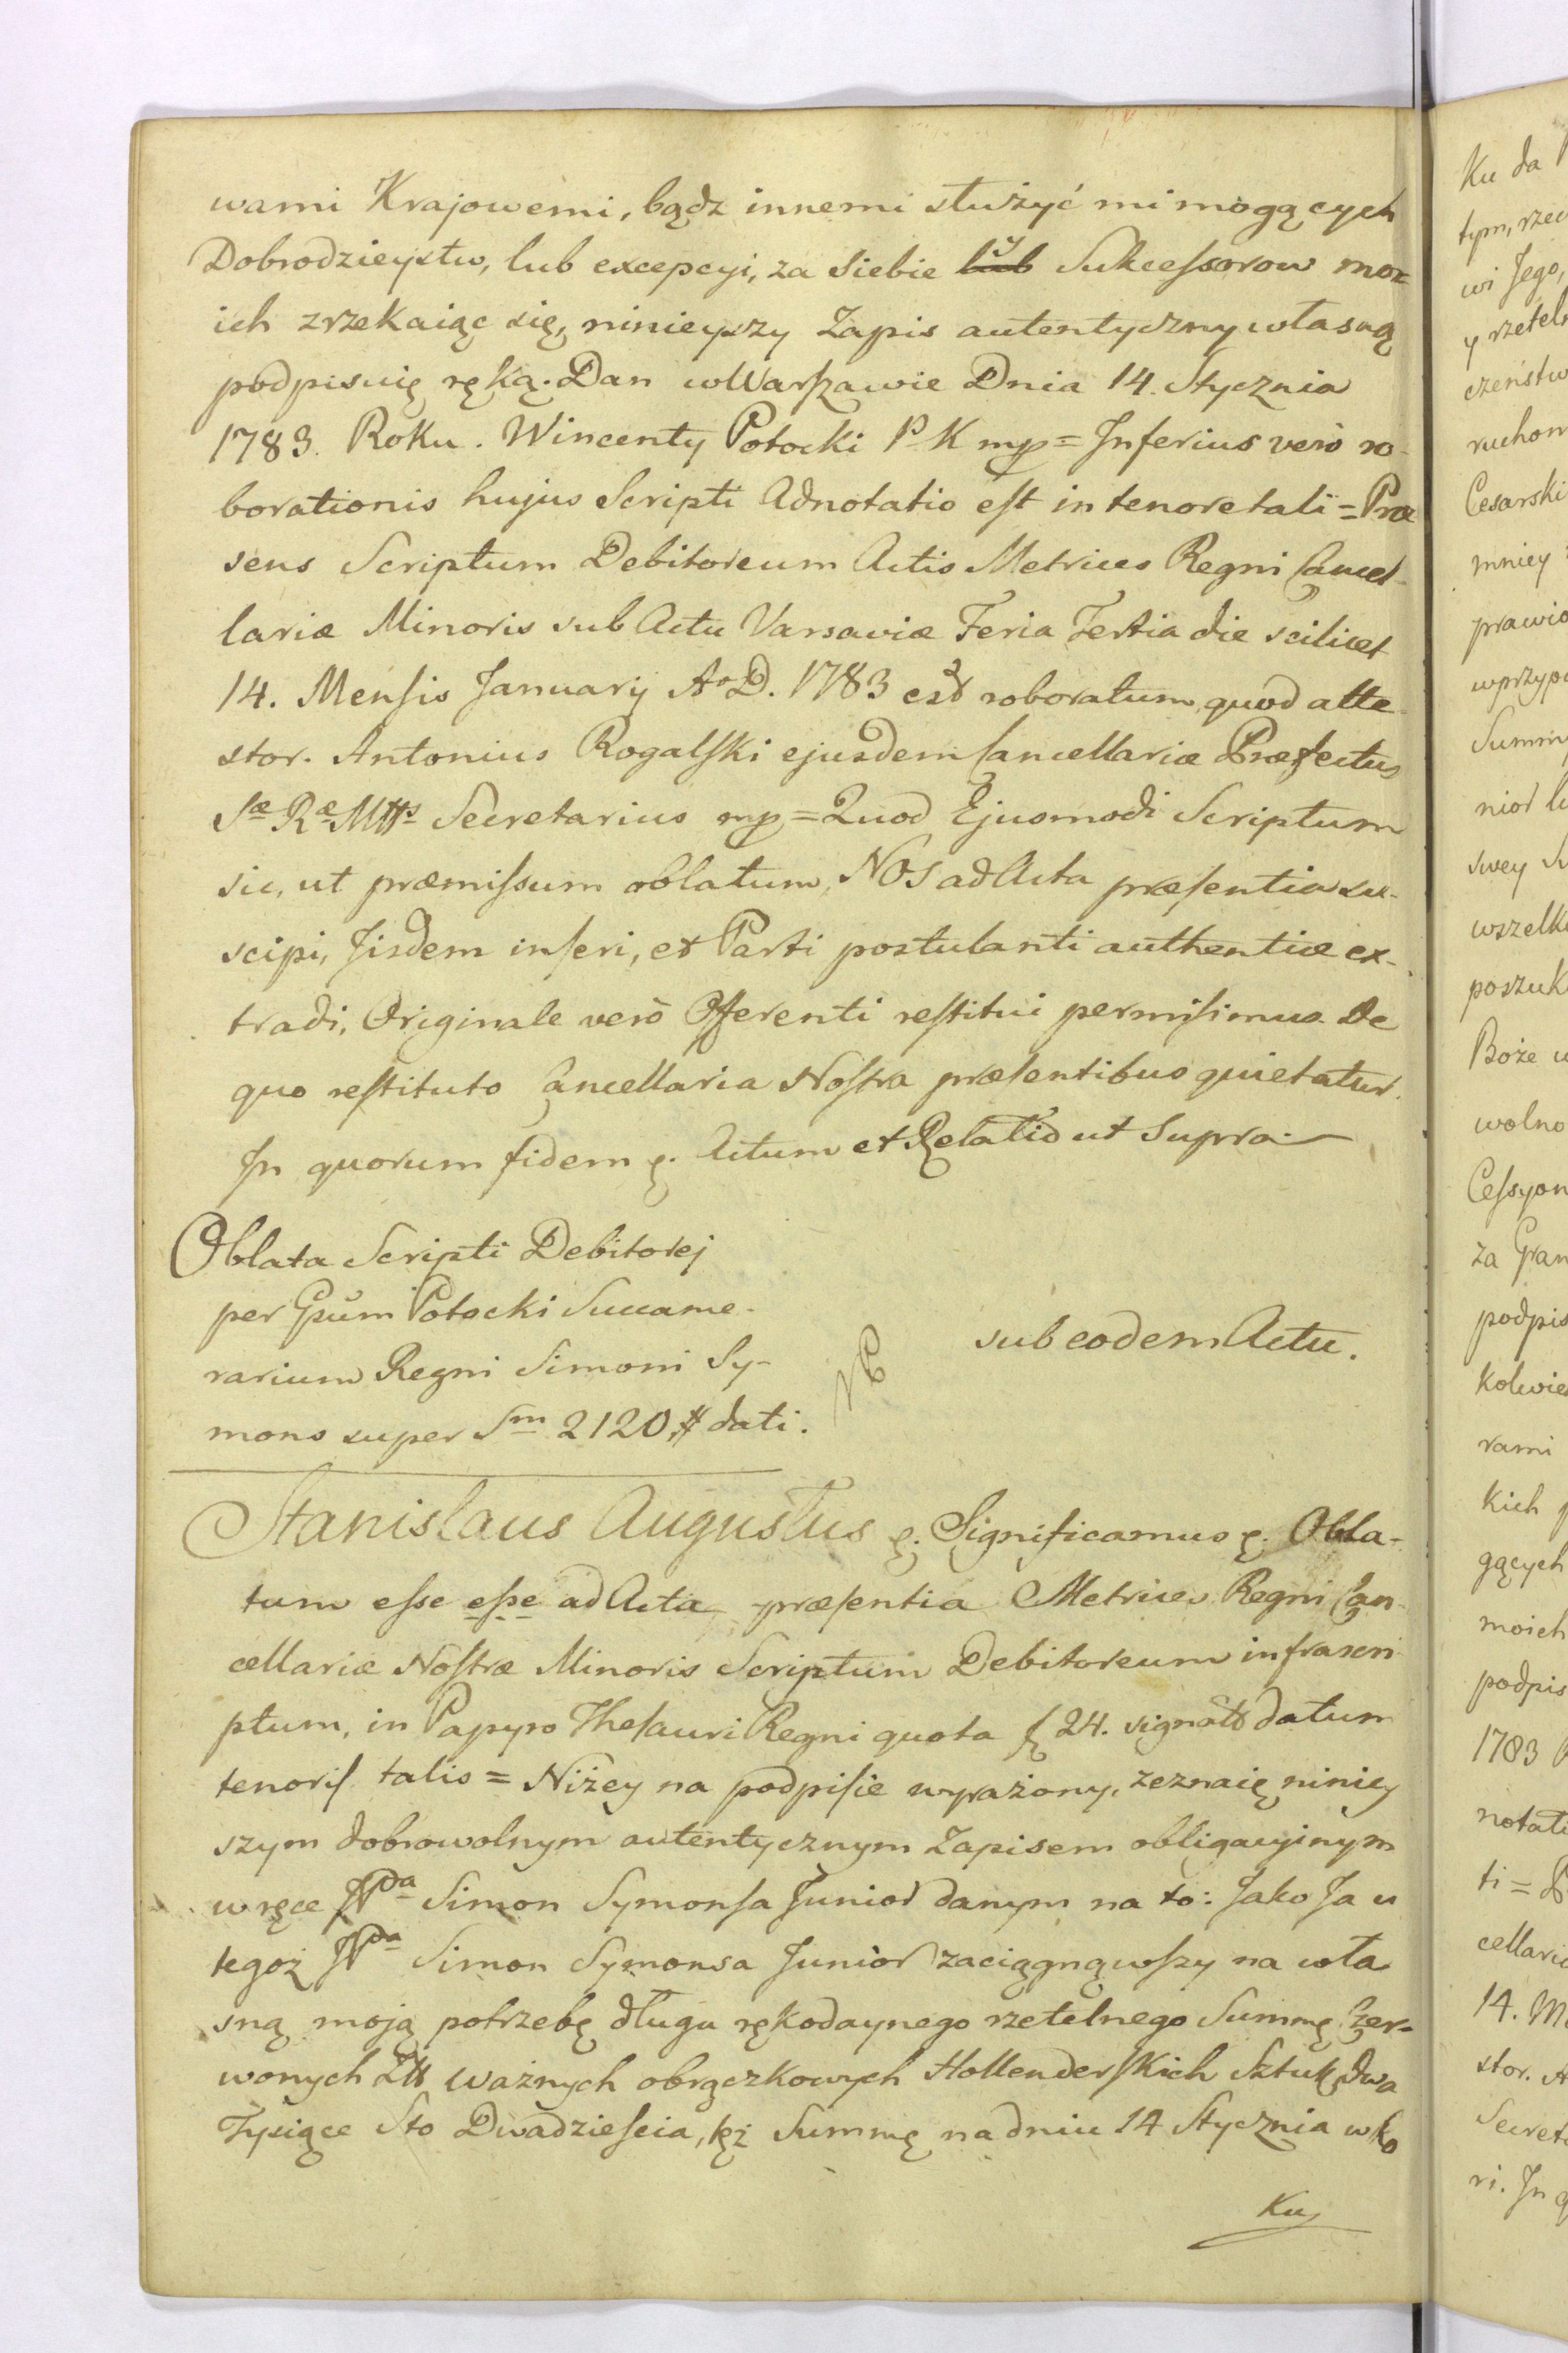 wami Krajowemi, bądz innemi służyć mi mogących
Dobrodzieystw, lub excepcyi, za siebie y Sukcessorow mo=
ich zrzekaiąc się, ninieyszy Zapis autentyczny własną
podpisuię ręką. Dan w Warszawie Dnia 14. Stycznia
1783. Roku. Wincenty Potocki P K mp = Inferius verò ro-
borationis hujus Scripti Adnotatio est in tenore tali = Præ
sens Scriptum Debitoreum Actis Metrices Regni Cancel-
lariæ Minoris sub Actu Varsaviæ Feria Tertia die scilicet
14. Mensis Januarij Ao D. 1783 est roboratum, quod atte
stor. Antonius Rogalski ejusdem Cancellariæ Præfectus
Sæ Ræ Mttis Secretarius mp = Quod Ejusmodi Scriptum
sic, ut præmissum oblatum, NOS ad Acta præsentia su-
scipi, Iisdem inseri, et Parti postulanti authentice ex-
tradi, Originale verò Offerenti restitui permisimus. De
quo restituto Cancellaria Nostra præsentibus quietatur.
In quorum fidem &. Actum et Relatio ut Supra.
Oblata Scripti Debitorej
per Gsum Potocki Succame-
rarium Regni Simoni Sy-
mons super Sm 2120 # dati.
sub eodem Actu.
Stanislaus Augustus &. Significamus &. Obla-
tum esse esse ad Acta præsentia Metrices Regni Can-
cellariæ Nostræ Minoris Scriptum Debitoreum infrascri
ptum, in Papyro Thesauri Regni quota f 24. signato datum
tenoris talis = Niżey na podpisie wyrażony, zeznaię niniey
szym dobrowolnym autentycznym Zapisem obligacyinym
w ręce JPda Simon Symonsa Junior danym na to: Jako Ja u
tegoż JPda Simon Symonsa Junior zaciągnąwszy na wła
sną moją potrzebę długu rękodaynego rzetelnego Summę Czer=
wonych Złł ważnych obrączkowych Hollenderskich Sztuk dwa
Tysiące Sto Dwadzieścia, tęż Summę na dniu 14 Stycznia w Ro
Ku
Ku da
tym, rzec
wi Jego,
y rzeteln
czeństw
ruchom
Cesarski
mniey
prawio
w przypa
Summ
nior lu
swey Su
wszelk
poszuk
Boże u
wolno
Cessyon
za Gran
podpis
kolwie
rami
kich p
gących
moich
podpis
1783 R
notati
ti =
cellari
14. M
stor. A
Secret
ri. In q